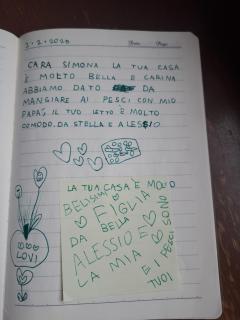 2.2.2020
CARA SIMONA LA TUA CASA
È MOLTO BELLA E CARINA
ABBIAMO DATO DA
MANGIARE AI PESCI CON MIO
PAPÀ IL TUO LETTO È MOLTO
COMODO. DA STELLA E ALESSIO
LOVI
LA TUA CASA È MOLTO
BELISIMI
FIGLIA
DA BELLA
ALESSIO E
LA MIA
E I PESCI SONO
TUOI